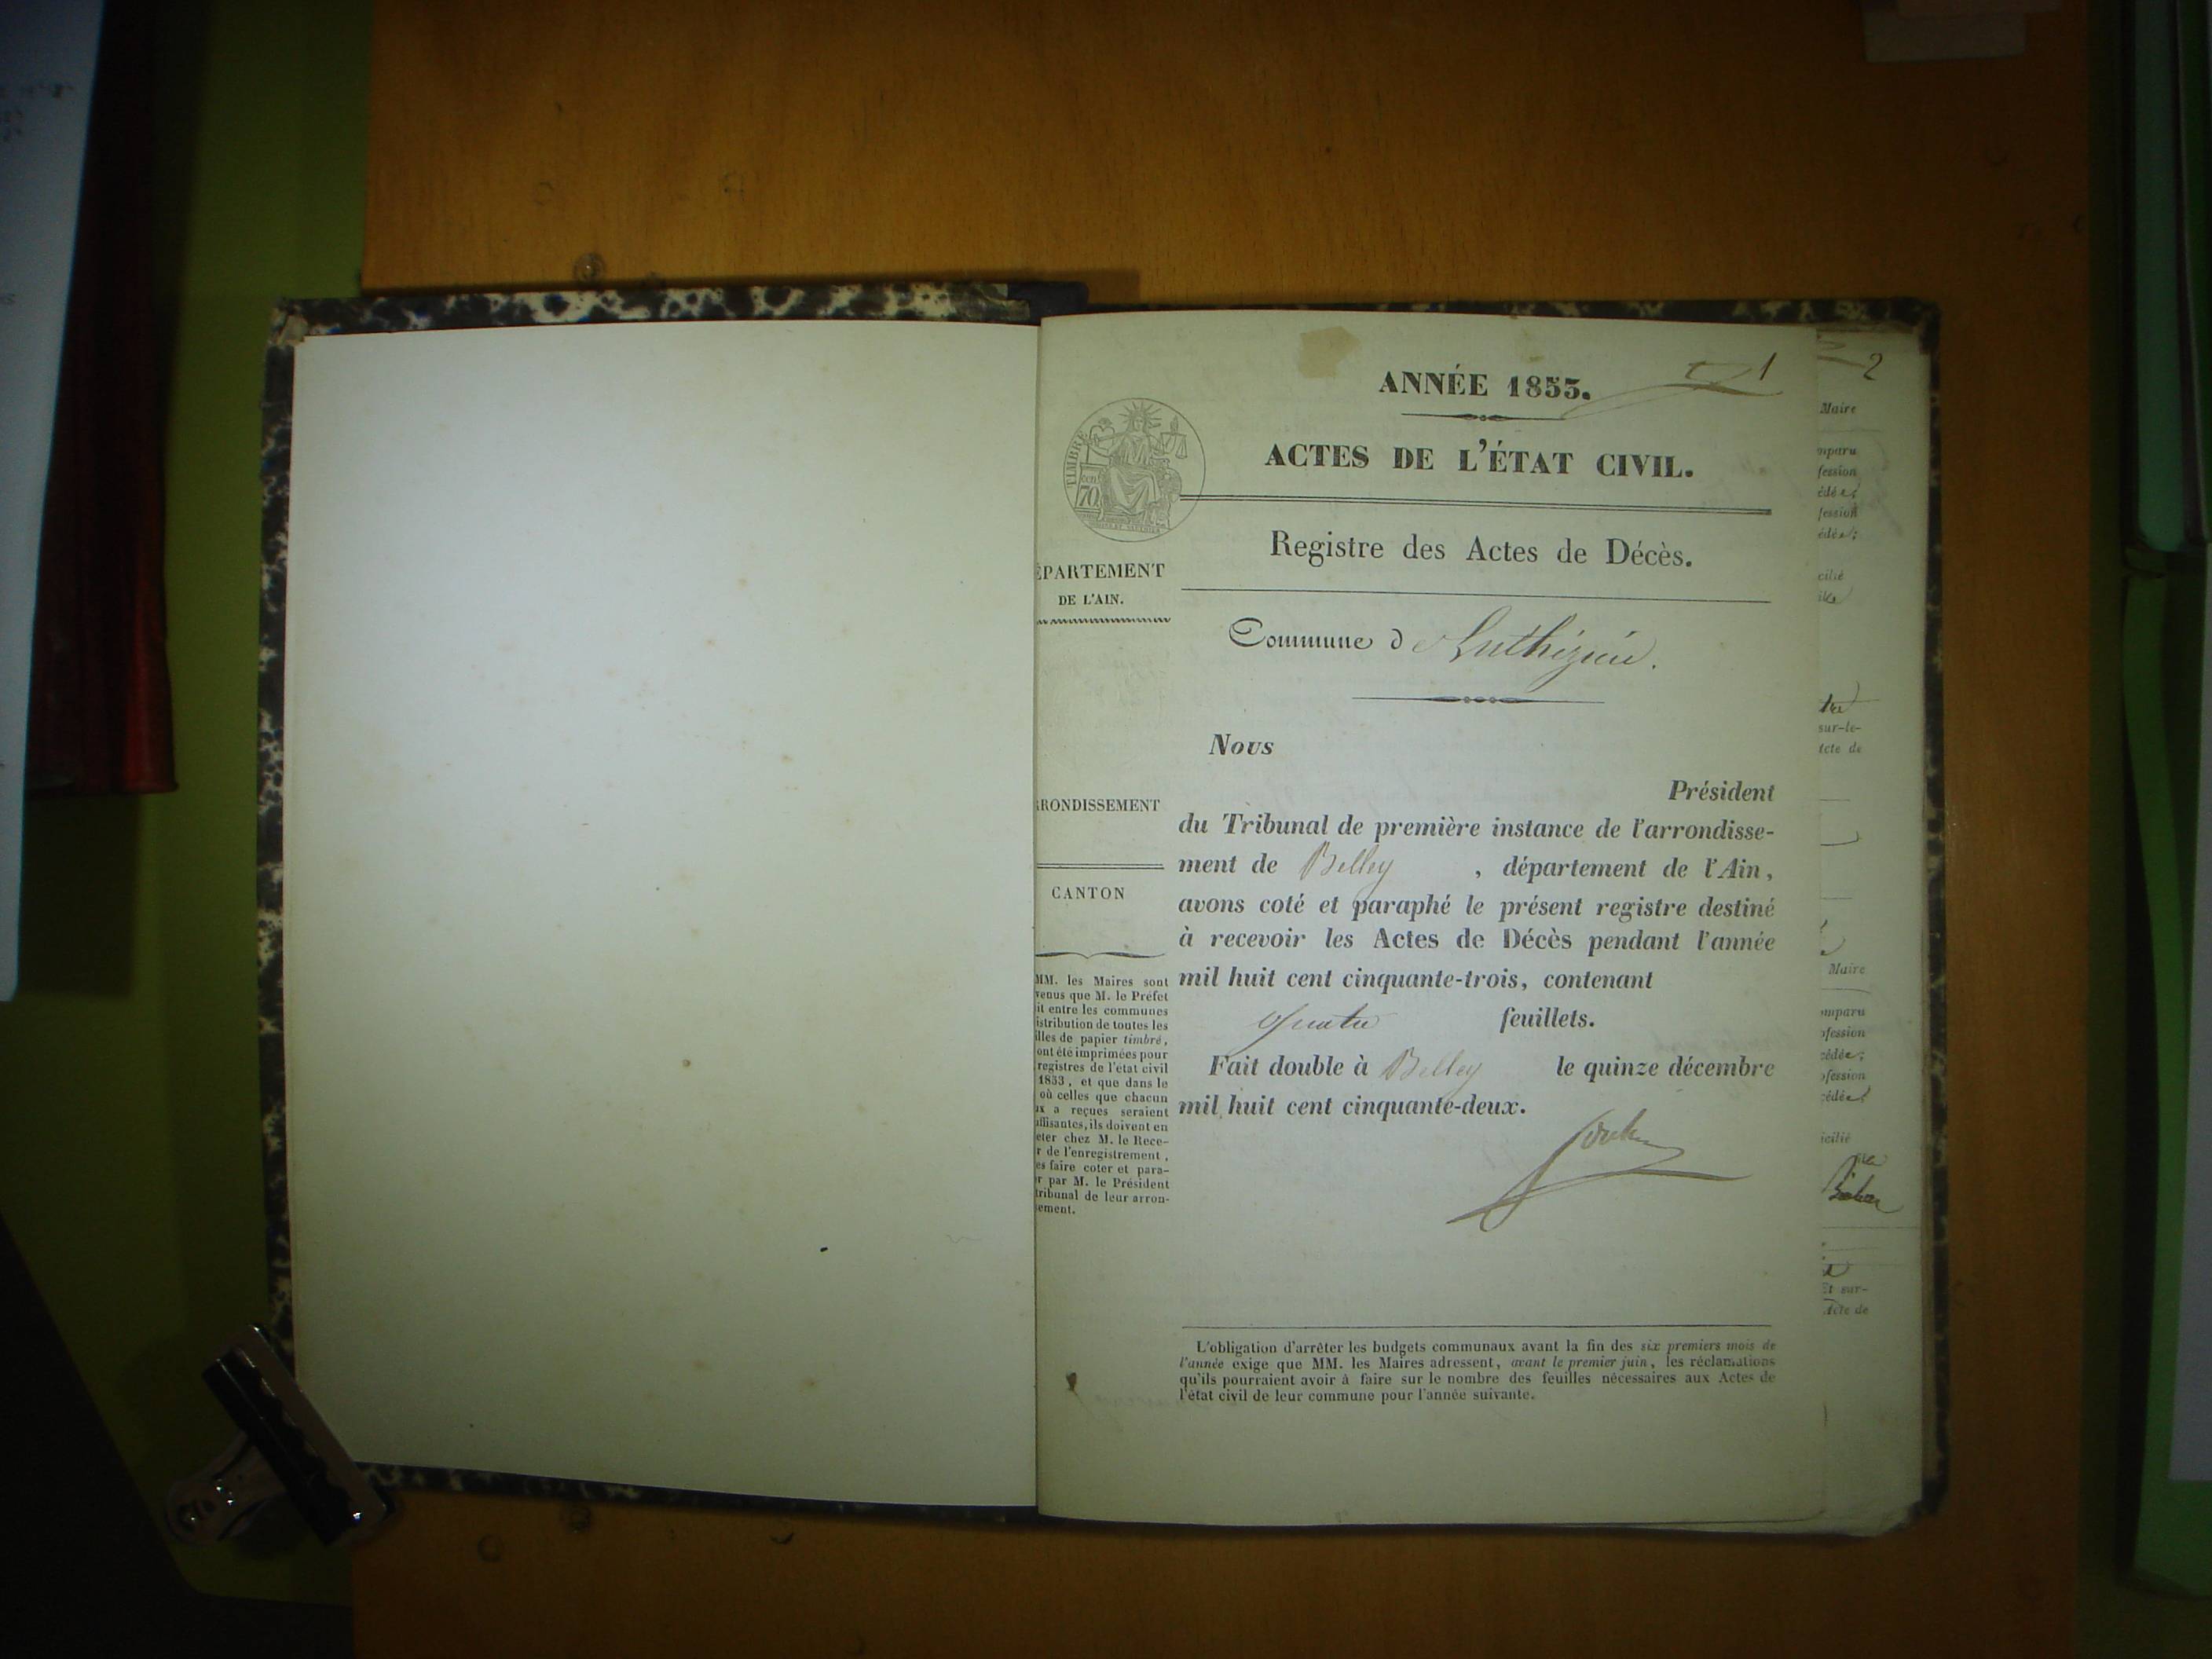 1
ANNÉE 1853.
ACTES DE L'ÉTAT CIVIL.
Registre des Actes de Décès.
TIMBRE
70
ÉPARTEMENT
DE L'AIN.
Commune d Luthézieu.
Nous
Président
du Tribunal de première instance de l'arrondisse-
ment de Belley , département de l'Ain,
avons coté et paraphé le présent registre destiné
à recevoir les Actes de Décès pendant l'année
mil huit cent cinquante-trois, contenant
quatre feuillets.
Fait double à Belley le quinze décembre
mil huit cent cinquante-deux.
RRONDISSEMENT
CANTON
MM. les Maires sont
venus que M. le Préfet
it entre les communes
istribution de toutes les
illes de papier timbré,
ont été imprimées pour
registres de l'état civil
1853, et que dans le
où celles que chacun
ux a reçues seraient
uffisantes, ils doivent en
eter chez M. le Rece-
r de l'enregistrement,
es faire coter et para-
r par M. le Président
tribunal de leur arron-
ement.
L'obligation d'arrêter les budgets communaux avant la fin des six premiers mois de
l'année exige que MM. les Maires adressent, avant le premier juin, les réclamations
qu'ils pourraient avoir à faire sur le nombre des feuilles nécessaires aux Actes de
l'état civil de leur commune pour l'année suivante.
2
Maire
mparu
fession
édée;
fession
édée;
cilié
sur-le-
cte de
Maire
omparu
ofession
cédée;
ofession
cédée
icilié
Et sur-
Acte de